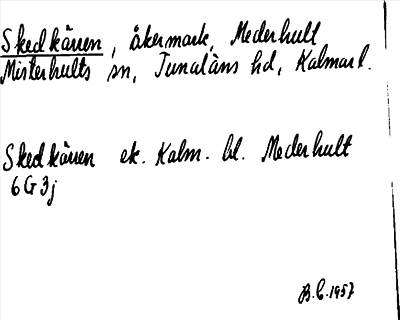 Skedkärren, åkermark, Mederhult
Misterhults sn, Tunaläns hd, Kalmar l.
Skedkärren ek. Kalm. bl. Mederhult
6G3j
B.C. 1957